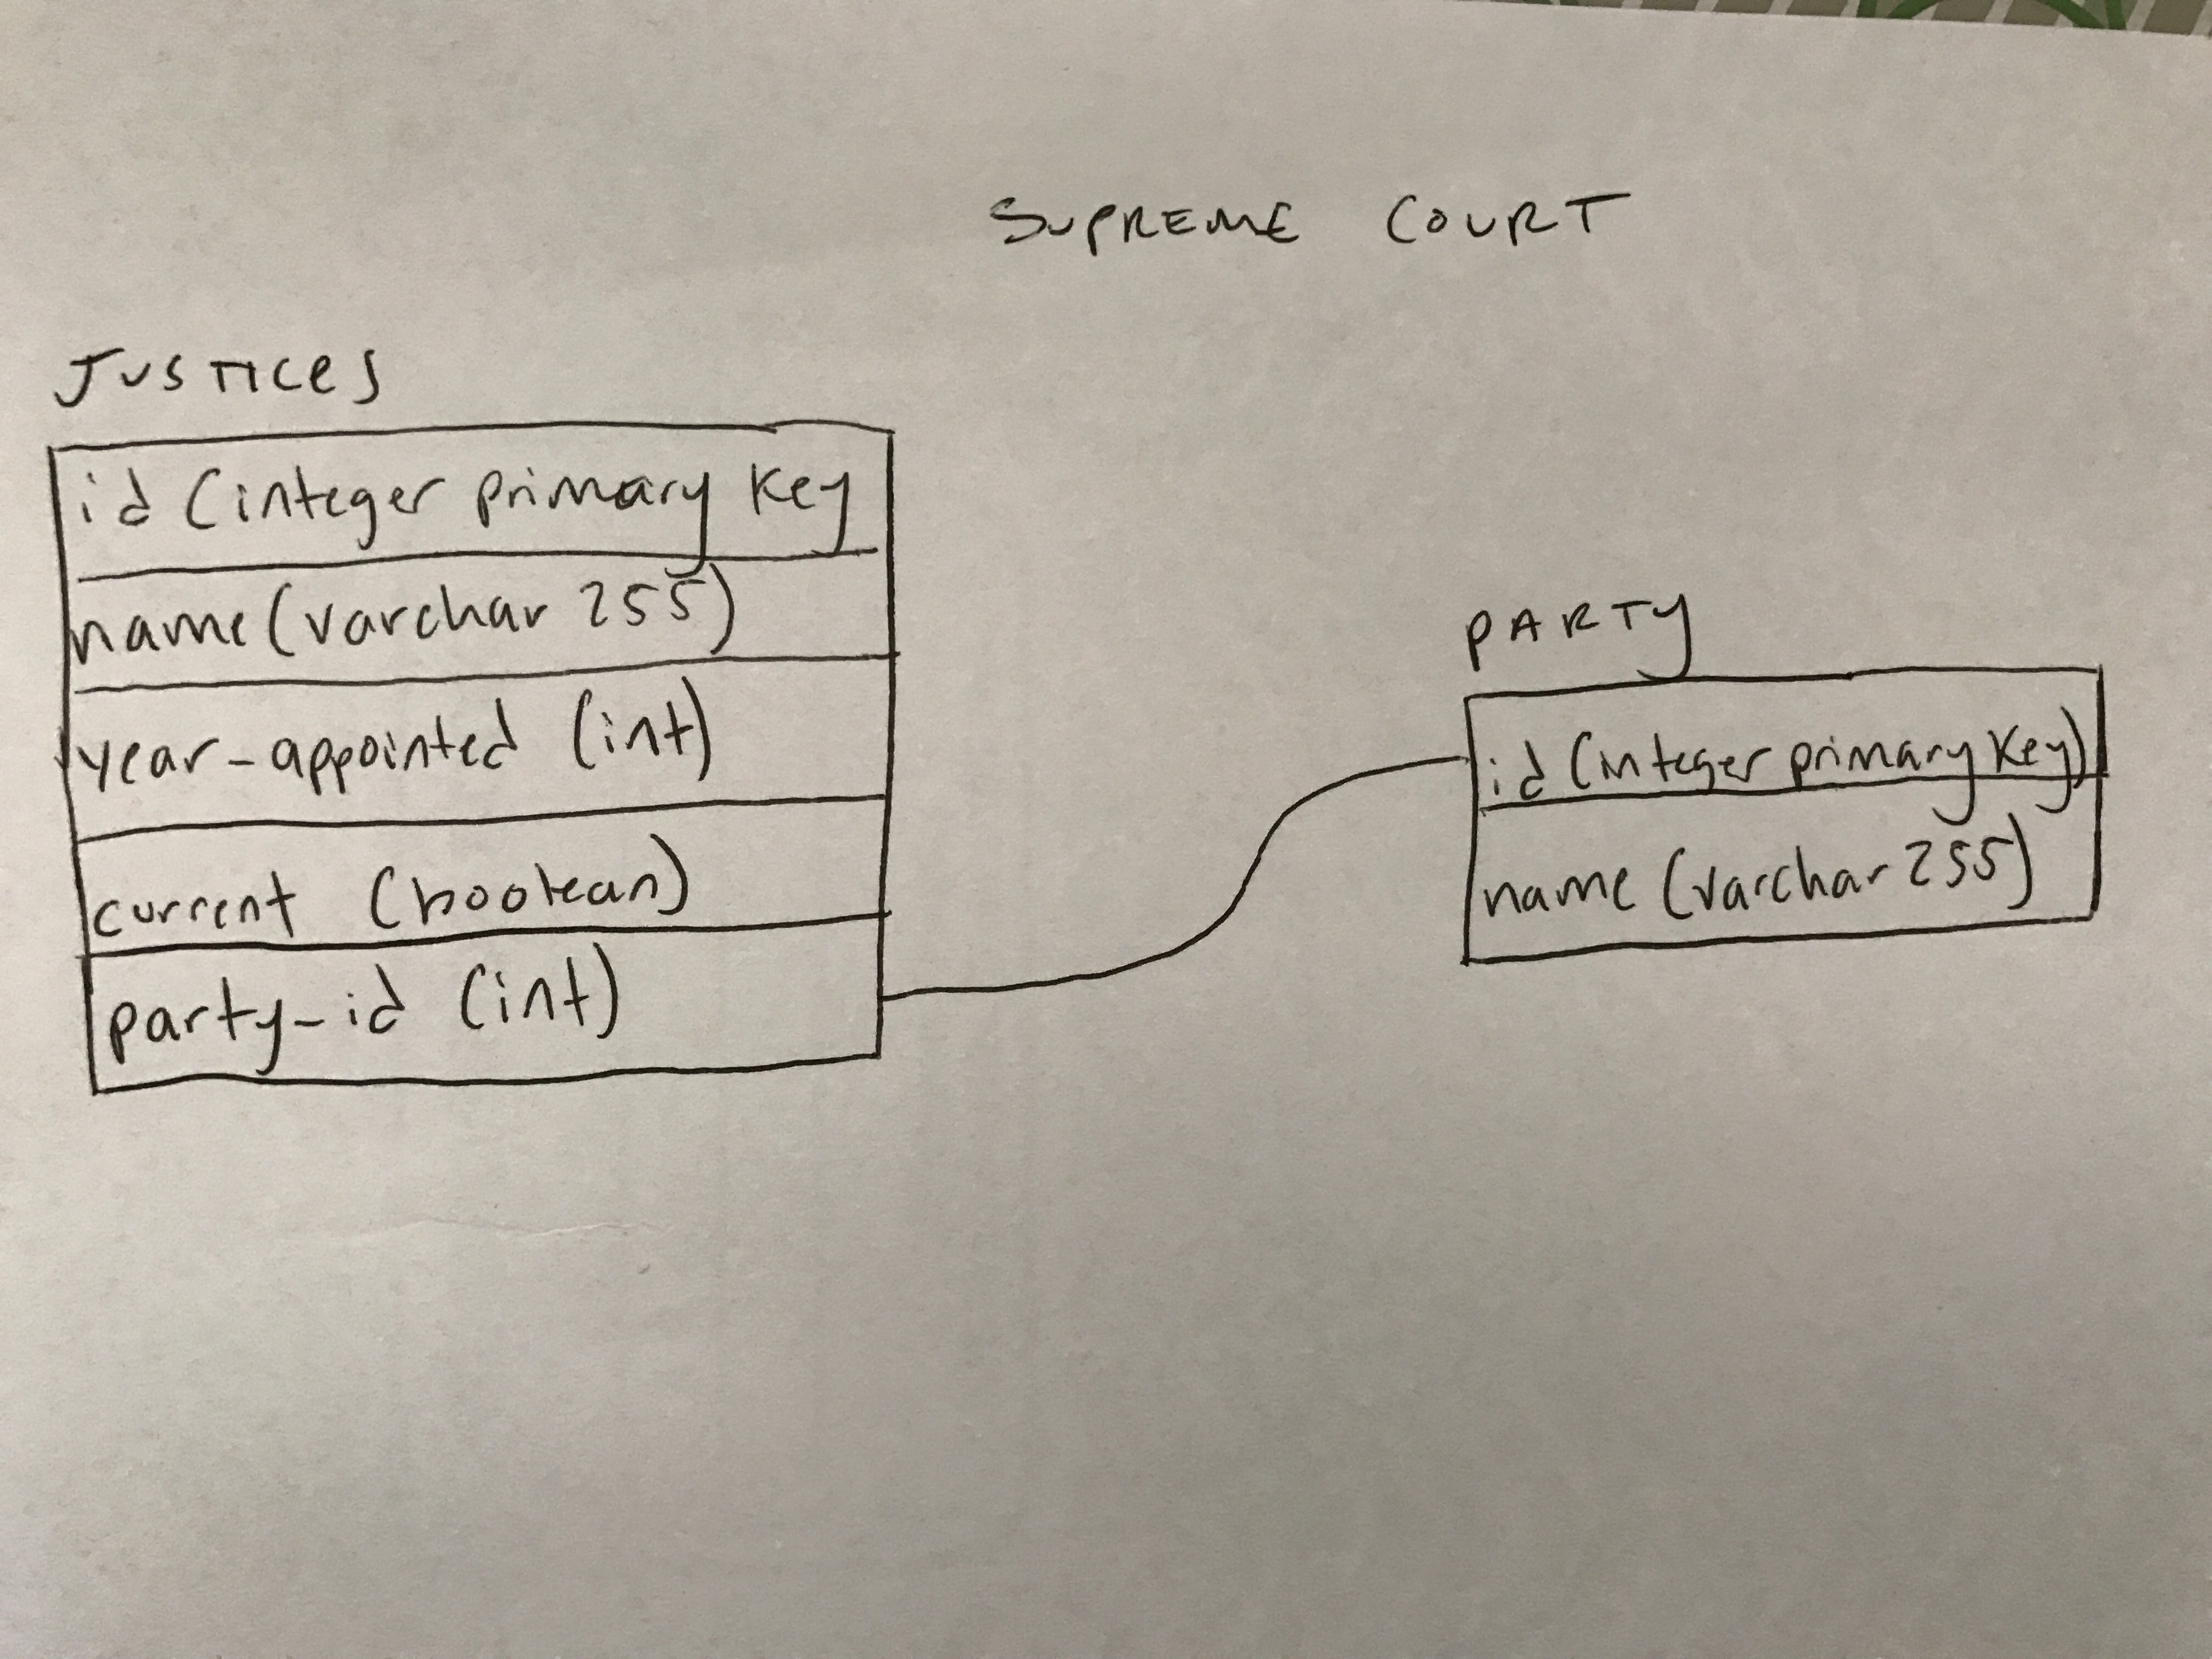 SUPREME COURT
JUSTICES
id (integer primary key
name (varchar 255)
year_appointed (int)
current (boolean)
party_id (int)
PARTY
id (integer primary key)
name (varchar 255)